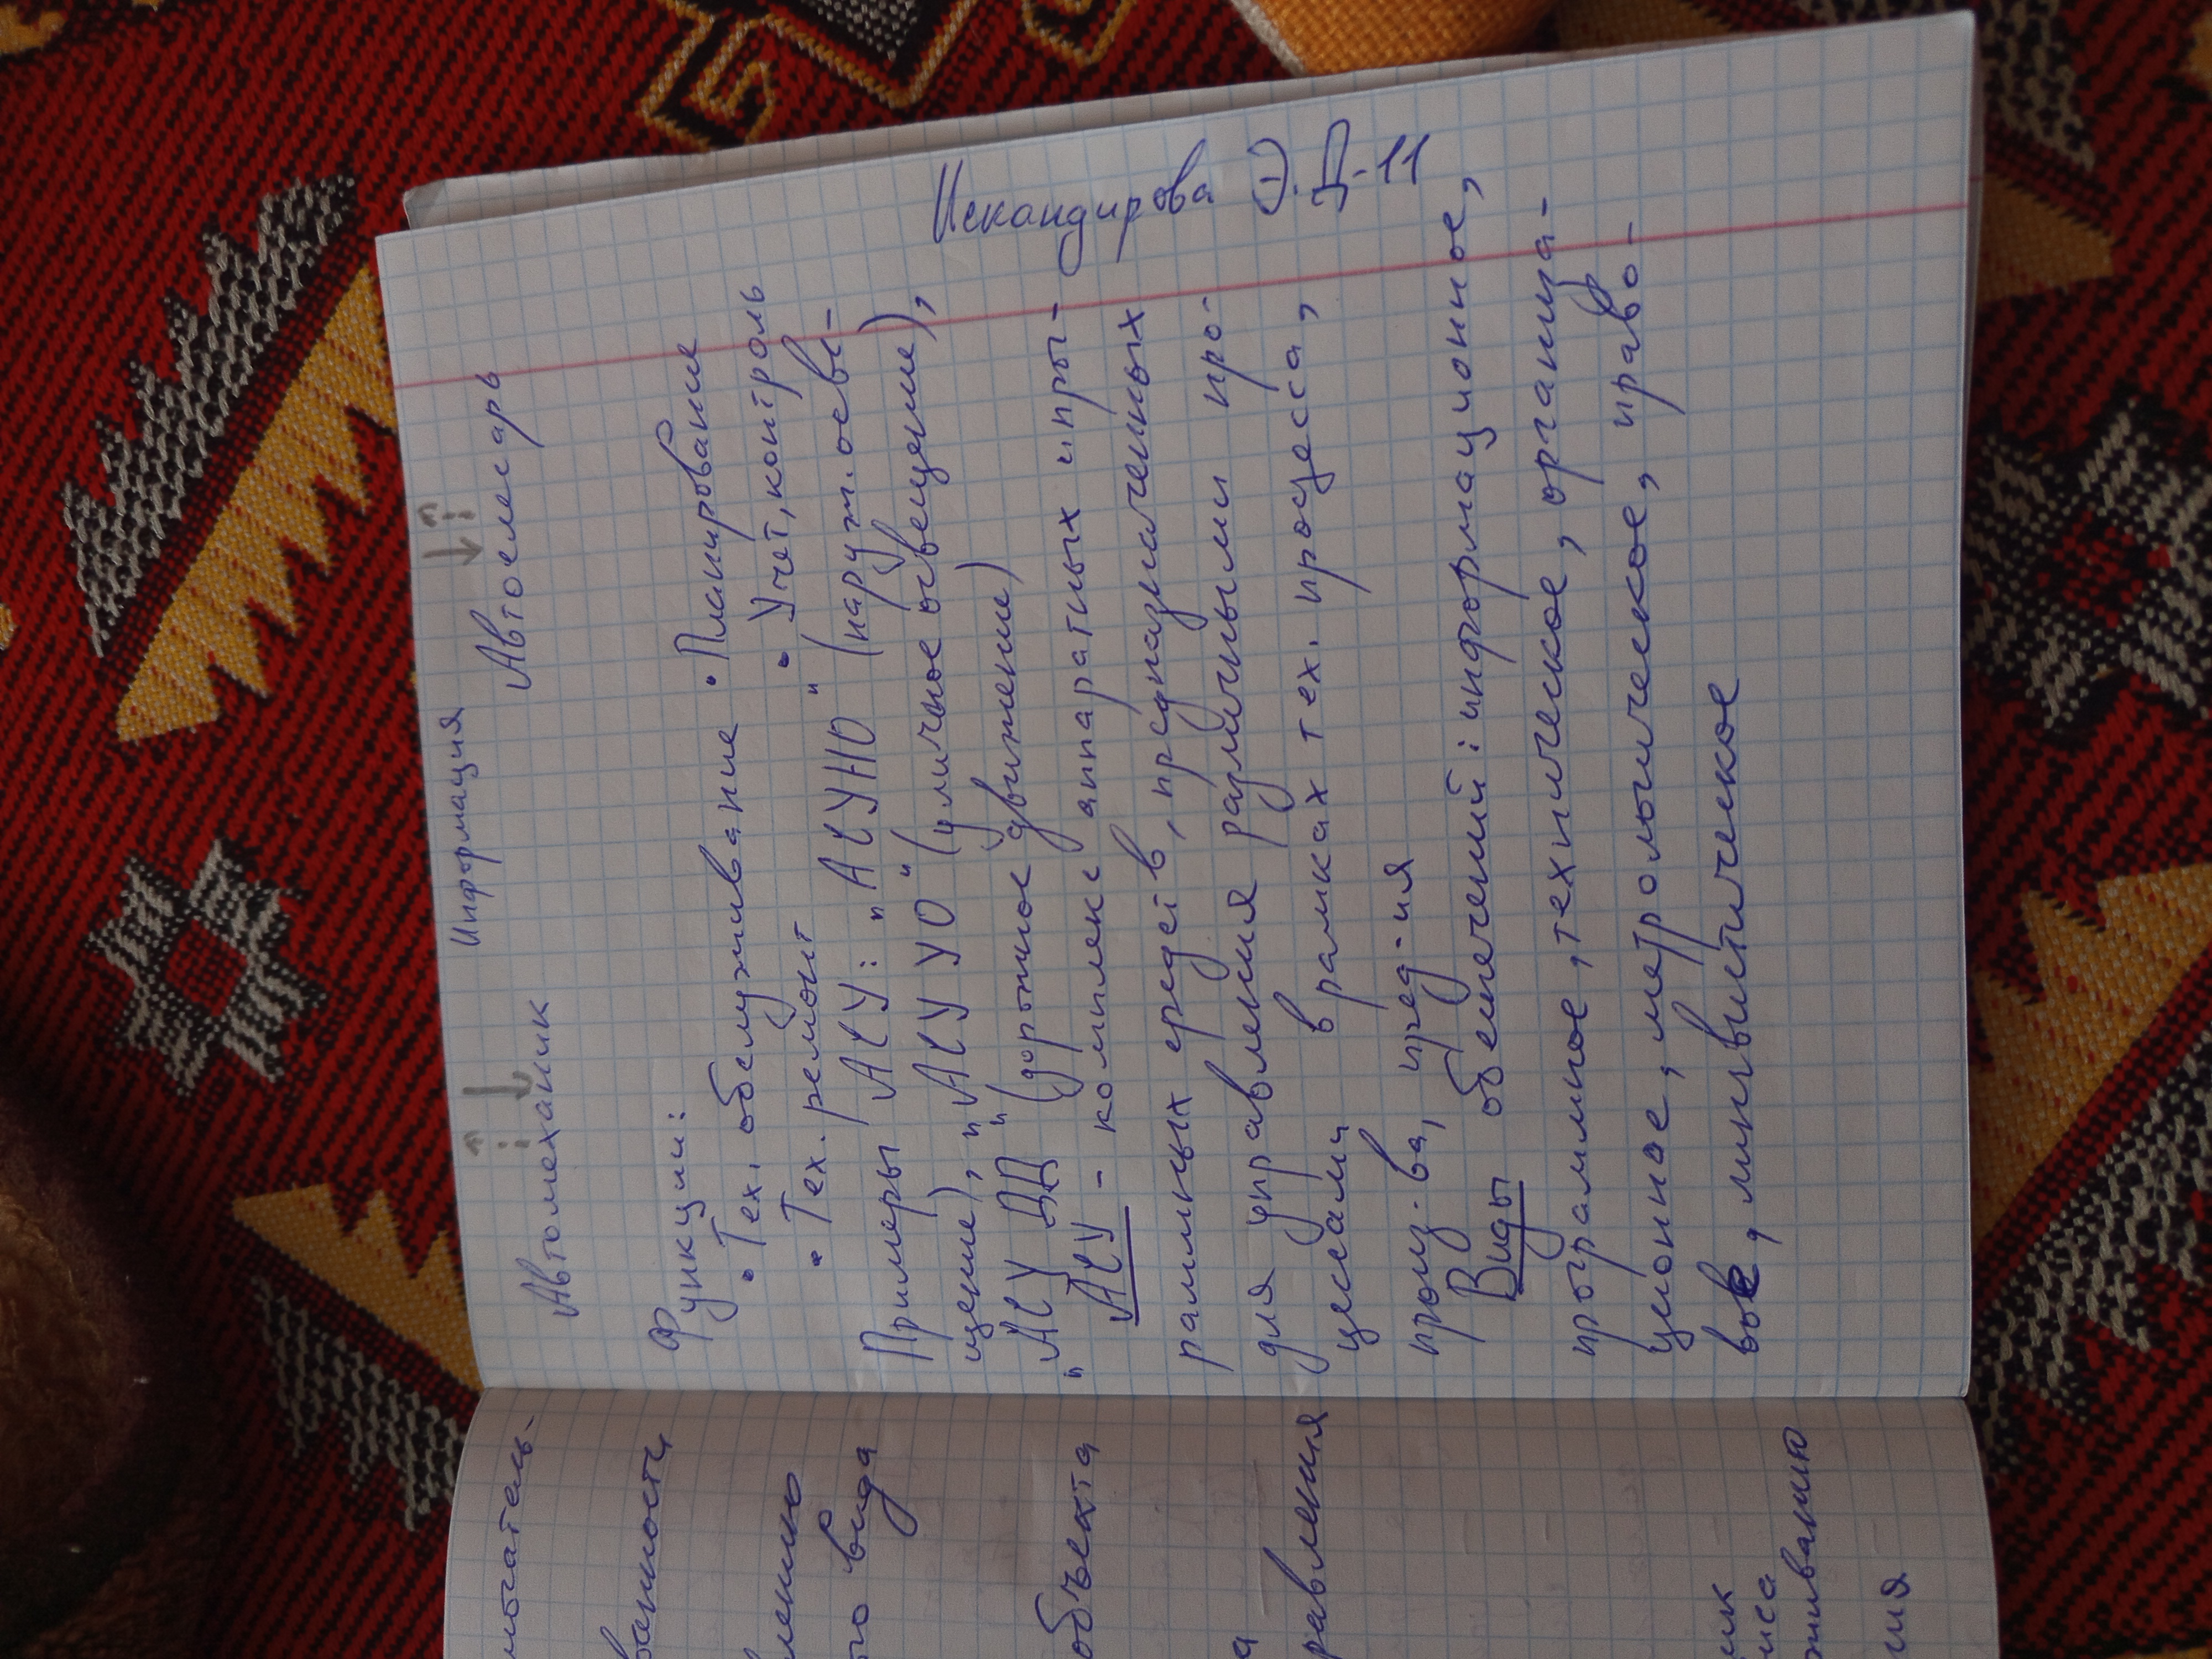 Информация
Автомеханик Автослесарь
Искандирова Э. Д-11
Функции:
• Тех. обслуживание • Планирование
• Тех. ремонт • Учет, контроль
Примеры АСУ: "АСУНО" (наруж. осве-
щение), "АСУ УО" (уличное освещение),
"АСУ ДД" (дорожное движение)
АСУ - комплекс аппаратных и прог-
раммных средств, предназначенных
для управления различными про-
цессами в рамках тех. процесса,
произ-ва, пред-ия
Виды обеспечений: информационное,
программное, техническое, организа-
ционное, метрологическое, право-
вое, лингвистическое
ванности
го вида
объекта
а
равления
ик
иса
живанию
ия